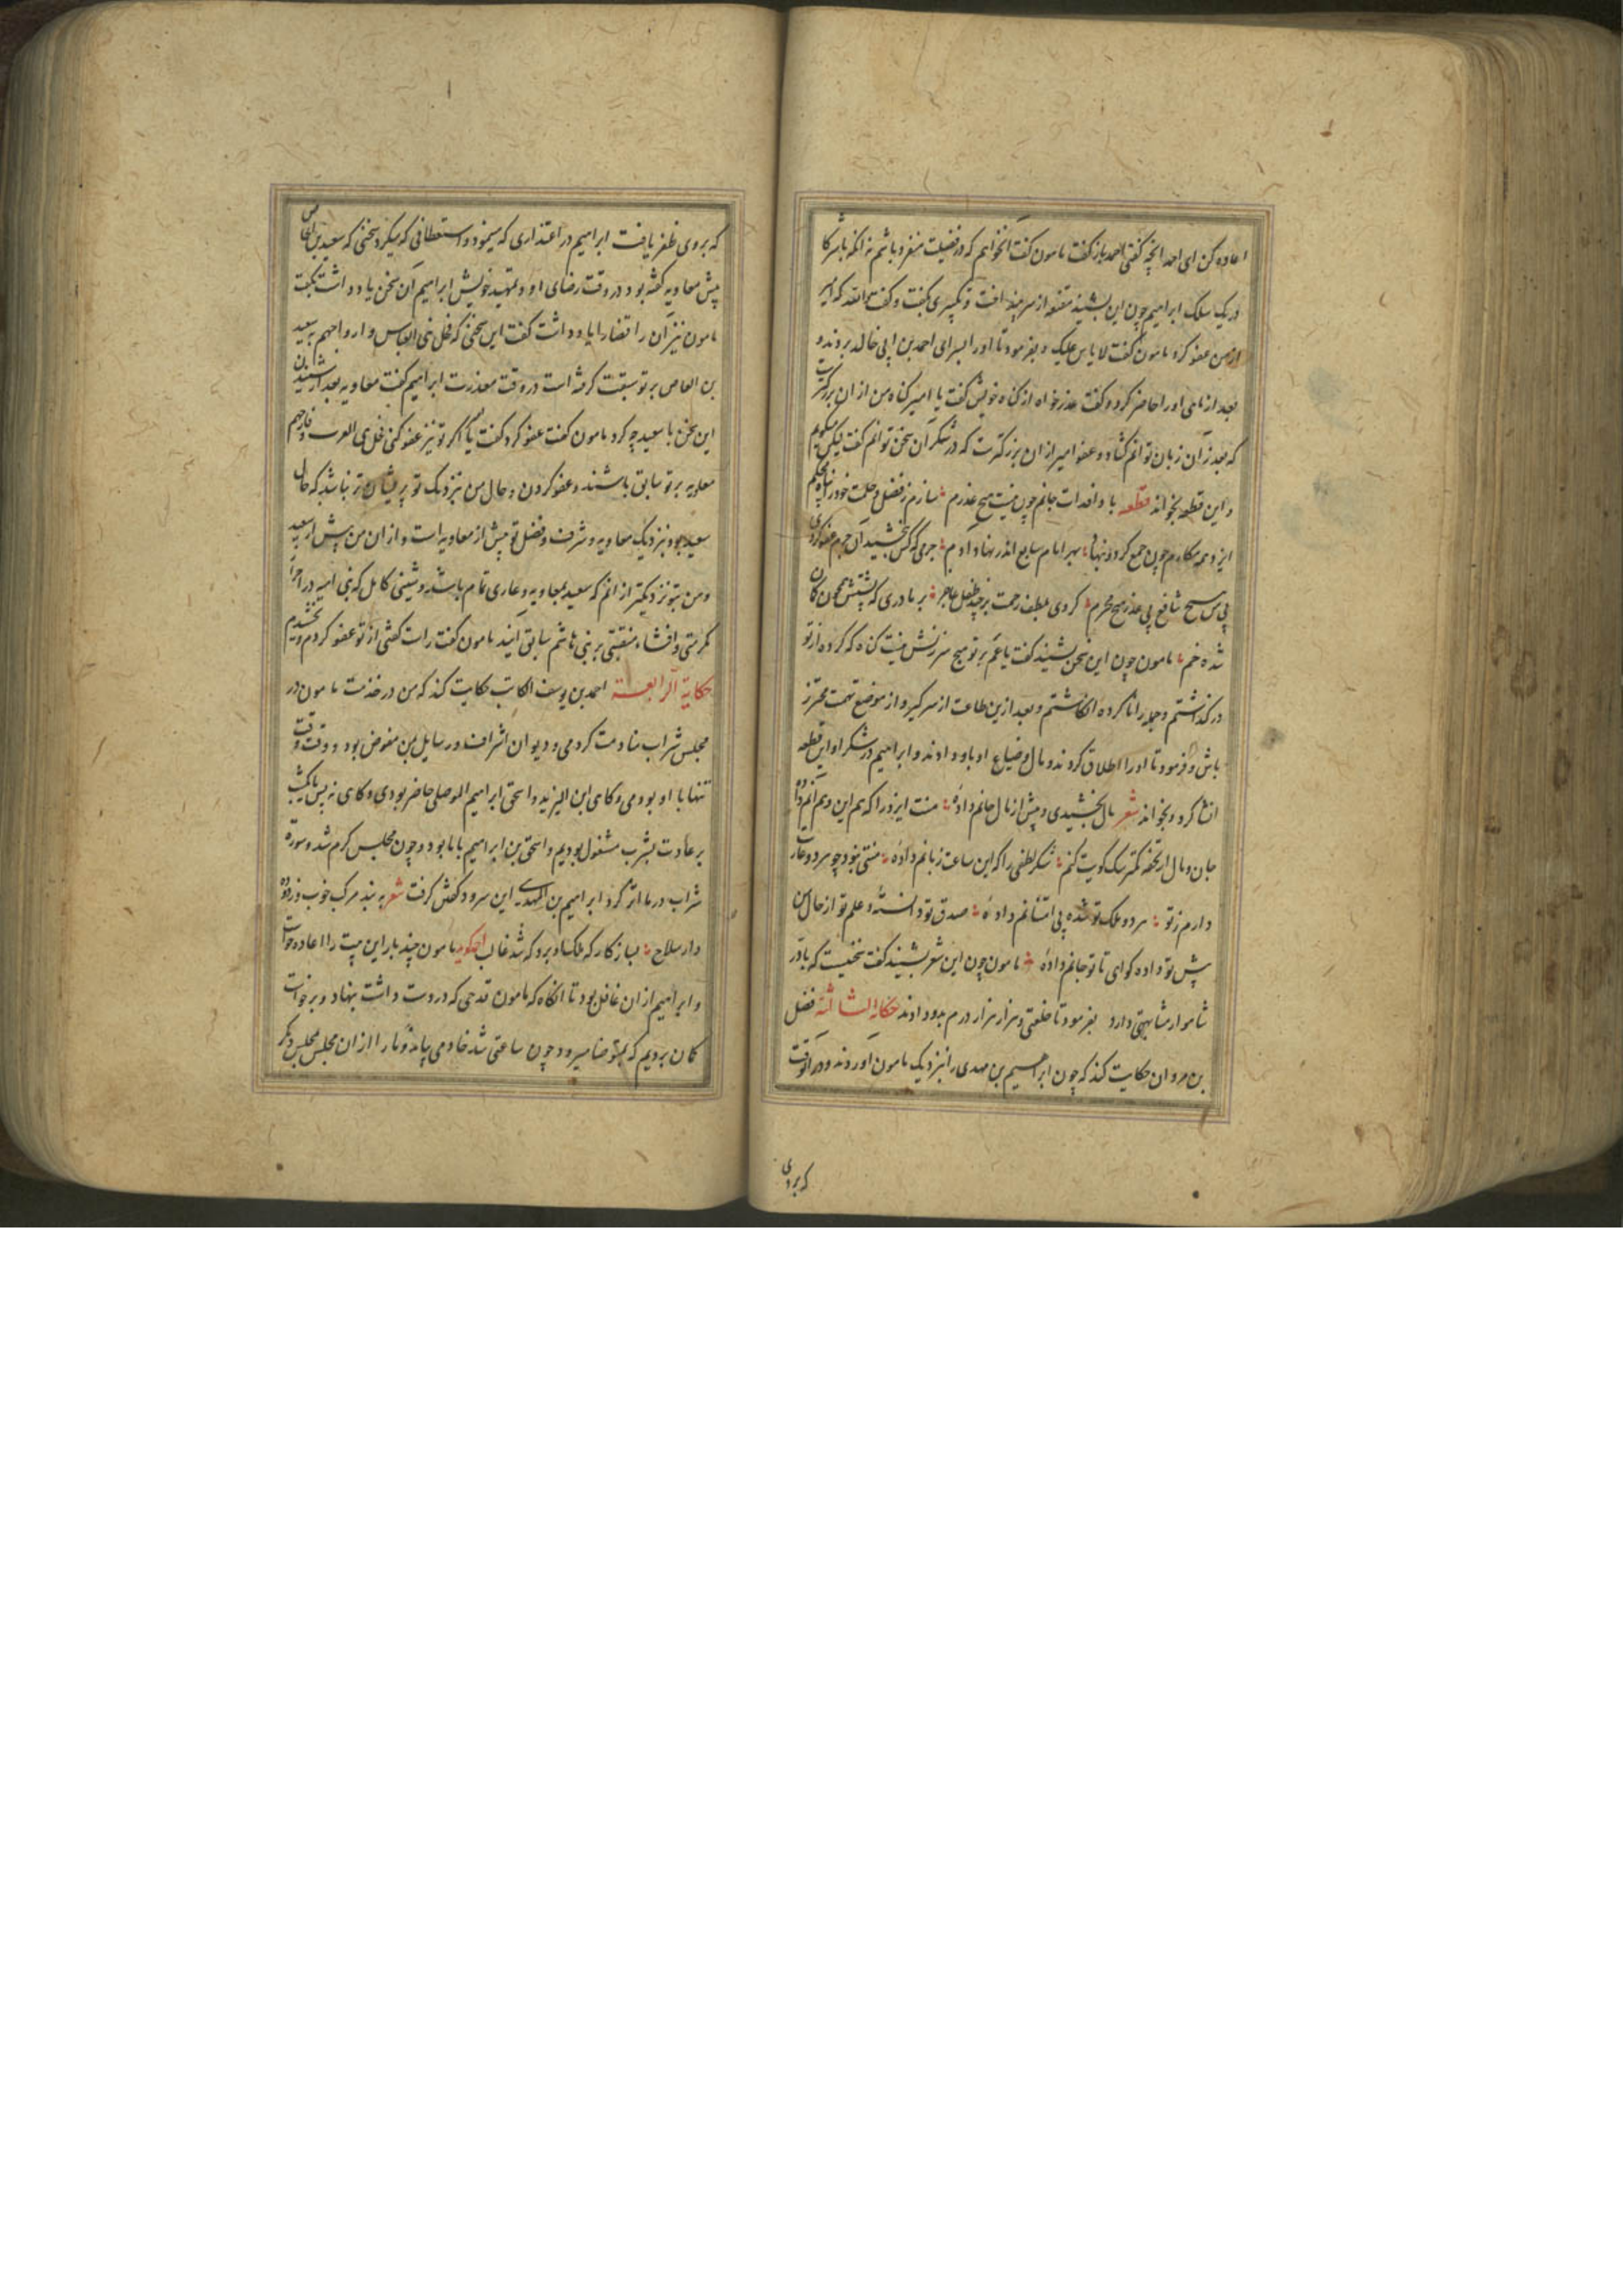 اعاده کن ای احمد آنچه گفتی احمد باز گفت مامون گفت آن خواهم که در فضیلت منفرد باشم نه آنکه با شرکا
در یک سلک ابراهیم چون این بشنید مقنعه از سر بینداخت و تکبیری بگفت و گفت والله که امیر
از من عفو کرد مامون گفت لا باس علیک و بفرمود تا او را بسرای احمد بن ابی خالد بردند و
بعد از ماهی او را حاضر کرد و گفت عذر خواه از گناه خویش گفت یا امیر گناه من از آن بزرگترست
که بعذر آن زبان توانم گشاد و عفو امیر از آن بزرگترست که در شکر آن سخن توانم گفت لیکن میگویم
و این قطعه بخواند قطعه با داده فدات جانم چون نیست هیچ عذرم سازم ز فضل و حلمت خود را پناه محکم
ایزد همه مکارم چون جمع کرد و بنهاد بهر امام سابع اندر نهاد آدم جرمی که کس نبخشید آن جرم عفو کردی
بی هیچ شافع بی عذر هیچ محرم کردی بلطف رحمت بر چند طفل عاجز بر مادری که پشتش همچون کمان
شده خم مامون چون این سخن بشنید گفت یا عم بر تو هیچ سرزنش نیست گناه که کرده از تو
در گذاشتم و جمله را ناکرده انگاشتم و بعد ازین طاعت از سر گیر و از موضع تهمت محترز
باش و فرمود تا او را اطلاق کردند و مال و ضیاع او باو دادند و ابراهیم در شکر او این قطعه
انشا کرد و بخواند شعر مال بخشیدی و پیش از مال جانم دادهٔ منت ایزد را که هم این و هم آنم دادهٔ
جان و مال ار تحفه کمتر سگ کویت کنم شکر لطفی را که این ساعت زبانم دادهٔ منتی نبود چو سر دو عاریت
دارم ز تو هر دو ملک تو شده بی امتنانم دادهٔ صدق تو دانسته و علم تو از حال من
پیش تو داده گوای تا تو جانم دادهٔ مامون چون این شعر بشنید گفت سخنیست که با در
شاهوار مشابهتی دارد بفرمود تا خلعتی و هزار هزار درم بدو دادند حکایة الثالثة فضل
بن مروان حکایت کند که چون ابراهیم بن مهدی را بنزدیک مامون آوردند و در آن وقت
که بروی
که بروی ظفر یافت ابراهیم در اعتذاری که مینمود و استعطافی که میکرد سخنی که سعید بن العاص
پیش معاویه گفته بود در وقت رضای او و تمهید خویش ابراهیم آن سخن یاد داشت بگفت
مامون نیز آن را قضا را یاد داشت گفت این سخنی که فحل بنی العباس وارواجهم سعید
بن العاص بر تو سبقت گرفته است در وقت معذرت ابراهیم گفت معاویه بعد از شنیدن
این سخن با سعید چه کرد مامون گفت عفو کرد گفت یا امیر اگر تو نیز عفو کنی فحل بنی الحرب و قارحهم
معاویه بر تو سابق باشند و عفو کردن و حال من بنزدیک تو پریشان تر نباشد که حال
سعید بود بنزدیک معاویه و شرف و فضل تو بیش از معاویه است و از آن من بیش از سعید
و من بتو نزدیکتر از آنم که سعید بمعاویه و عاری تمام باشد و شینی کامل که بنی امیه در احراز
مکرمتی و افشاء منقبتی بر بنی هاشم سابق آیند مامون گفت راست گفتی از تو عفو کردم و بخشیدم
حکایة الرابعة احمد بن یوسف الکاتب حکایت کند که من در خدمت مامون در
مجلس شراب منادمت کردمی و دیوان اشراف و رسایل بمن مفوض بود و وقت وقت
تنها با او بودمی و گاهی ابن الیزید و اسحق ابراهیم الموصلی حاضر بودی و گاهی نه پس یک شب
بر عادت بشرب مشغول بودیم و اسحق بن ابراهیم با ما بود و چون مجلس گرم شد و سورت
شراب در ما اثر کرد ابراهیم بن المهدی این سرود گفتن گرفت شعر به بند مرکب خوب و زدوده
دار سلاح بساز کار که ملک ببرد که شد غالب مامون چند بار این بیت را اعاده خواست
و ابراهیم از آن غافل بود تا آنگاه که مامون قدحی که در دست داشت بنهاد و برخواست
گمان بردیم که بمتوضا میرود چون ساعتی شد خادمی بیامد و ما را از آن مجلس بمجلس دیگر